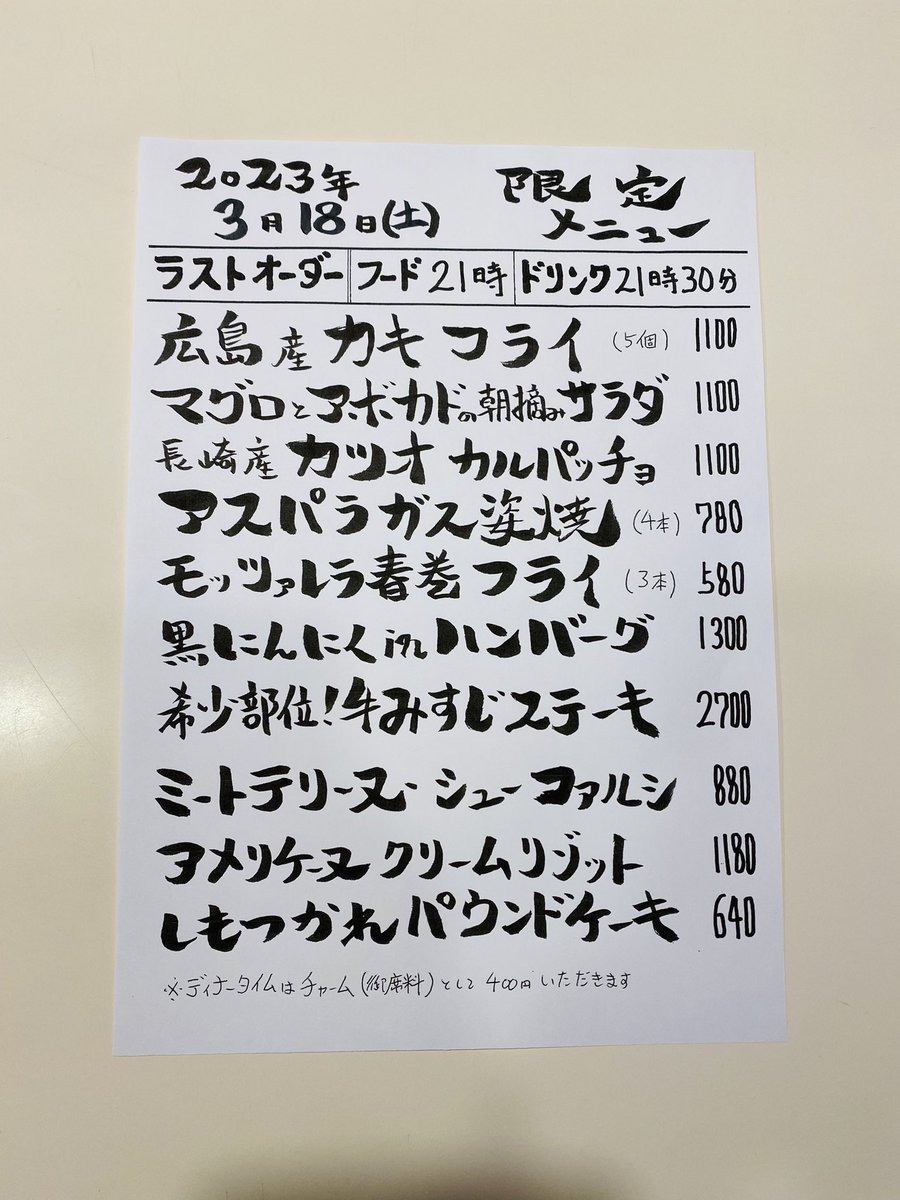 2023年 限定
3月18日(土) メニュー
ラストオーダー フード21時 ドリンク21時30分
広島産 カキフライ (5個) 1100
マグロとアボカドの朝摘みサラダ 1100
長崎産 カツオ カルパッチョ 1100
アスパラガス姿焼 (4本) 780
モッツァレラ春巻フライ (3本) 580
黒にんにくinハンバーグ 1300
希少部位!牛みすじステーキ 2700
ミートテリーヌ・シューファルシ 880
アメリケーヌクリームリゾット 1180
しもつかれパウンドケーキ 640
※ディナータイムはチャーム(御席料)として400円いただきます